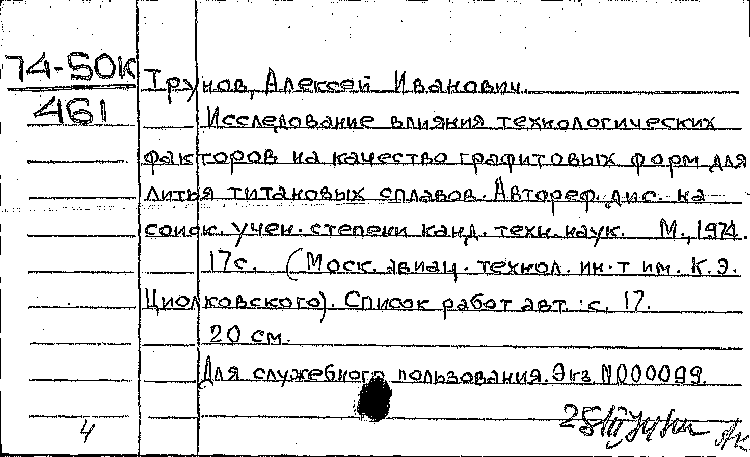 74-50К Трунов, Алексей Иванович.
461 Исследование влияния технологических
факторов на качество графитовых форм для
литья титановых сплавов. Автореф. дис. на
соиск. учен. степени канд. техн. наук. М., 1974.
17 с. (Моск. авиац. технол. ин-т им. К. Э.
Циолковского). Список работ авт.: с. 17.
20 см.
Для служебного пользования. Экз. N000099.
4